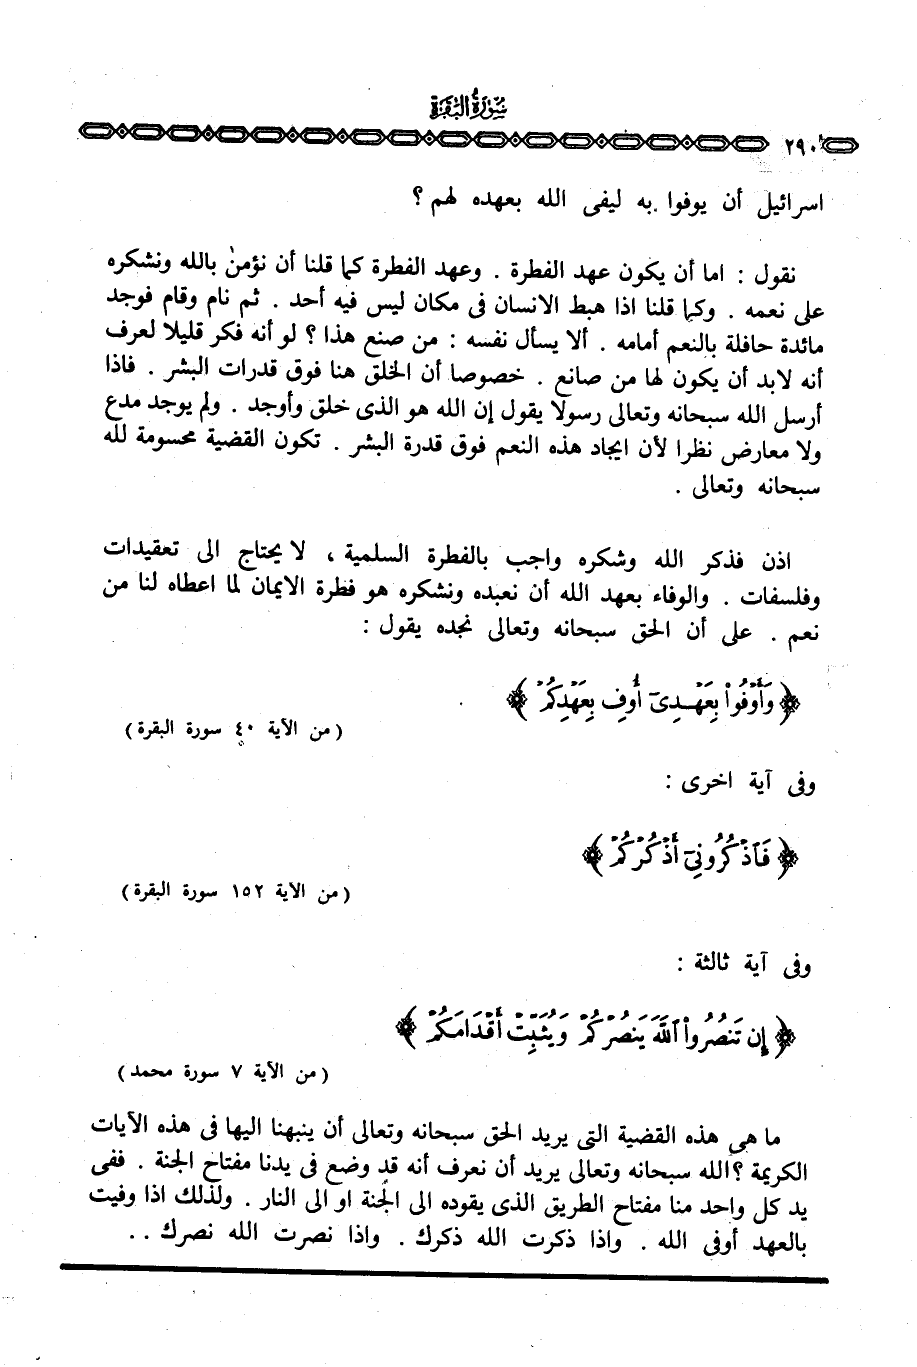 سورة البقرة
٢٩٠
اسرائيل أن يوفوا به ليفى الله بعهده لهم ؟
نقول : اما أن يكون عهد الفطرة . وعهد الفطرة كما قلنا أن نؤمن بالله ونشكره
على نعمه . وكما قلنا اذا هبط الانسان فى مكان ليس فيه أحد . ثم نام وقام فوجد
مائدة حافلة بالنعم أمامه . ألا يسأل نفسه : من صنع هذا ؟ لو أنه فكر قليلا لعرف
أنه لابد أن يكون لها من صانع . خصوصا أن الخلق هنا فوق قدرات البشر . فاذا
أرسل الله سبحانه وتعالى رسولا يقول إن الله هو الذى خلق وأوجد . ولم يوجد مدع
ولا معارض نظرا لأن ايجاد هذه النعم فوق قدرة البشر . تكون القضية محسومة لله
سبحانه وتعالى .
اذن فذكر الله وشكره واجب بالفطرة السلمية ، لا يحتاج الى تعقيدات
وفلسفات . والوفاء بعهد الله أن نعبده ونشكره هو فطرة الايمان لما اعطاه لنا من
نعم . على أن الحق سبحانه وتعالى نجده يقول :
﴿ وَأَوْفُوا۟ بِعَهْدِىٓ أُوفِ بِعَهْدِكُمْ ﴾
( من الآية ٤٠ سورة البقرة )
وفى آية اخرى :
﴿ فَٱذْكُرُونِىٓ أَذْكُرْكُمْ ﴾
( من الاية ١٥٢ سورة البقرة )
وفى آية ثالثة :
﴿ إِن تَنصُرُوا۟ ٱللَّهَ يَنصُرْكُمْ وَيُثَبِّتْ أَقْدَامَكُمْ ﴾
( من الآية ٧ سورة محمد )
ما هى هذه القضية التى يريد الحق سبحانه وتعالى أن ينبهنا اليها فى هذه الآيات
الكريمة ؟ الله سبحانه وتعالى يريد أن نعرف أنه قد وضع فى يدنا مفتاح الجنة . ففى
يد كل واحد منا مفتاح الطريق الذى يقوده الى الجنة او الى النار . ولذلك اذا وفيت
بالعهد أوفى الله . واذا ذكرت الله ذكرك . واذا نصرت الله نصرك . .